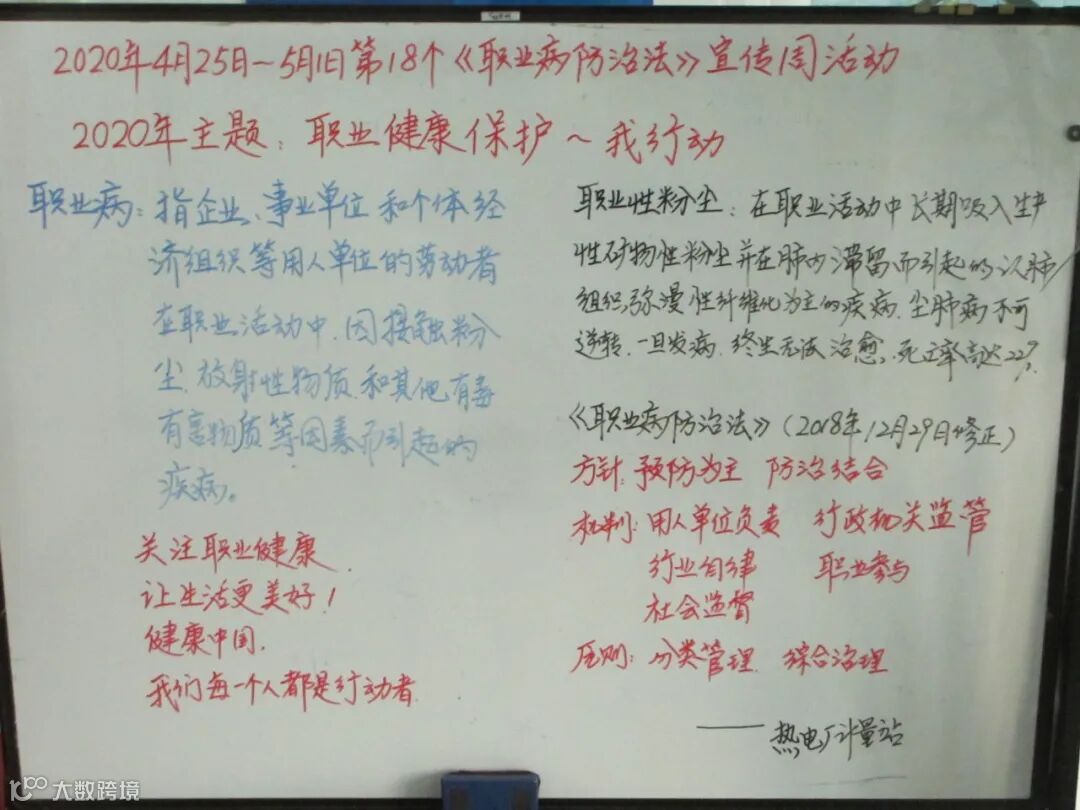 2020年4月25日~5月1日第18个《职业病防治法》宣传周活动
2020年主题：职业健康保护~我行动
职业病：指企业、事业单位和个体经
济组织等用人单位的劳动者
在职业活动中，因接触粉
尘、放射性物质和其他有毒
有害物质等因素而引起的
疾病。
关注职业健康
让生活更美好！
健康中国，
我们每一个人都是行动者
职业性粉尘：在职业活动中长期吸入生产
性矿物性粉尘并在肺内滞留而引起的以肺
组织弥漫性纤维化为主的疾病。尘肺病不可
逆转，一旦发病，终生无法治愈，死亡率高达22%。
《职业病防治法》（2018年12月29日修正）
方针：预防为主 防治结合
机制：用人单位负责 行政机关监管
行业自律 职业参与
社会监督
原则：分类管理 综合治理
——热电厂计量站
大数跨境